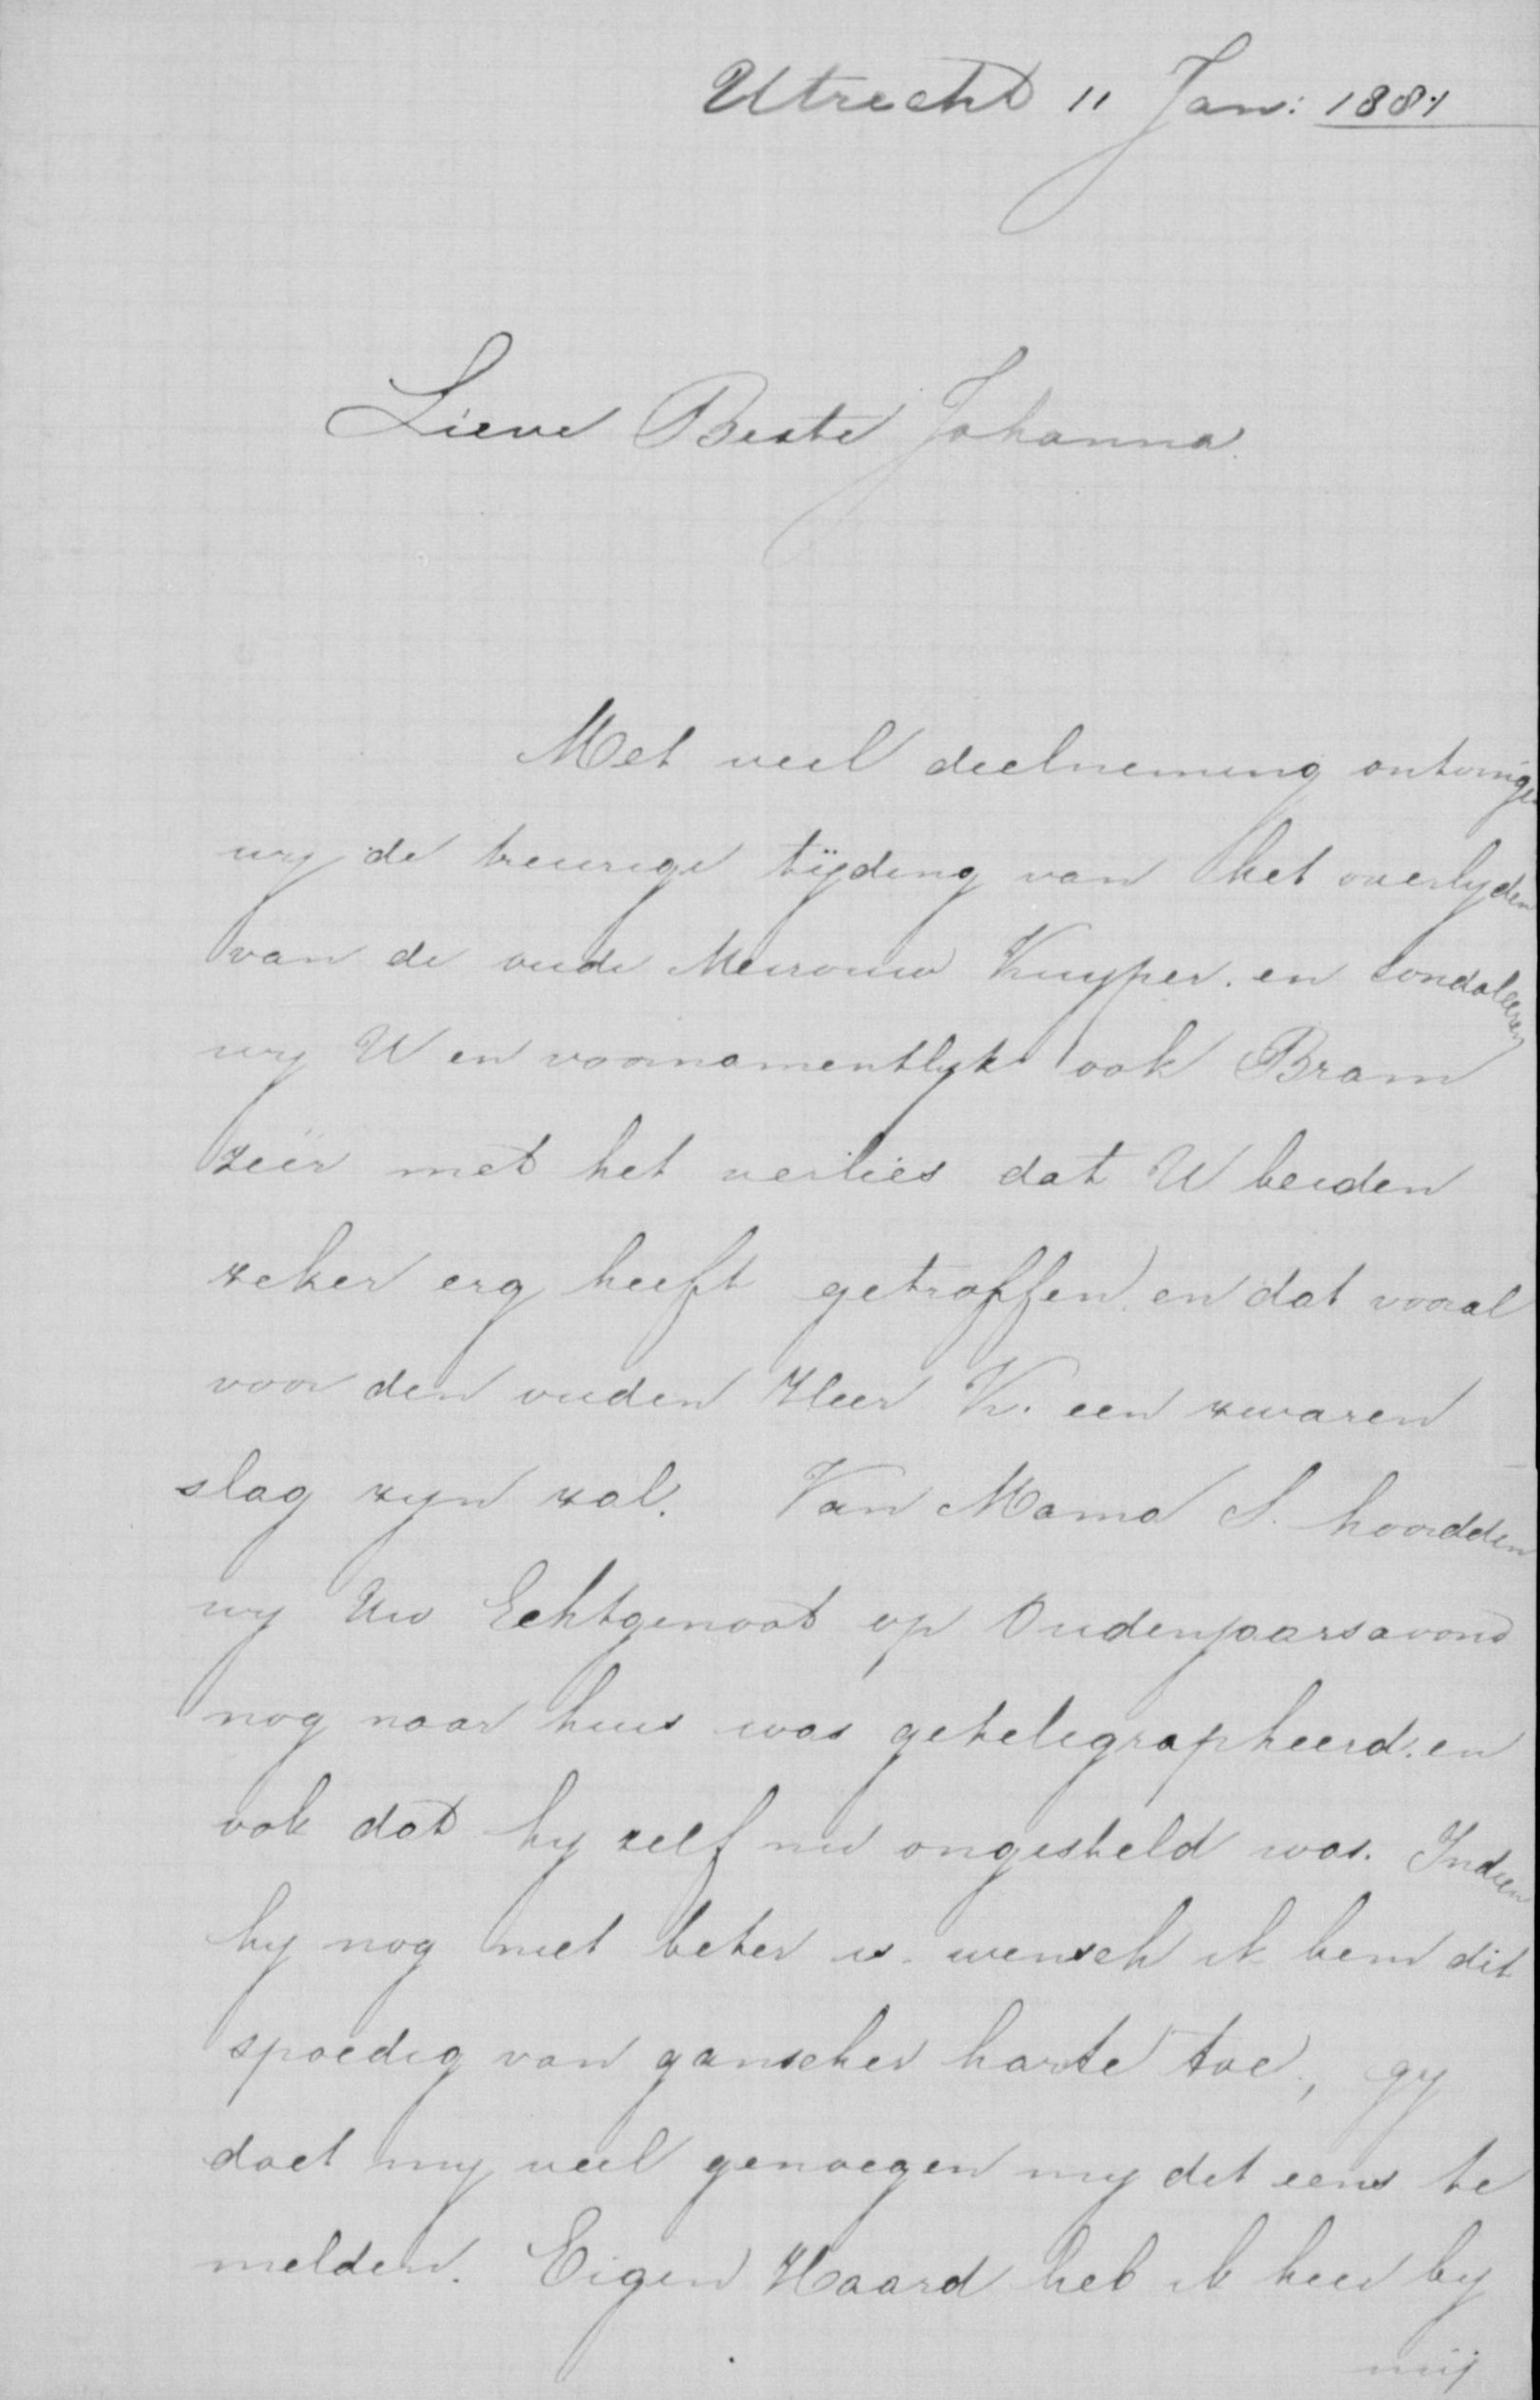 Utrecht 11 Jan: 1881
Lieve Beste Johanna.
Met veel deelneming ontvingen
wy de treurige tijding van het overlyden
van de oude Mevrouw Kuyper. en condoleeren
wy U en voornamentlyk ook Bram
zeer met het verlies dat U beiden
zeker erg heeft getroffen. en dat vooral
voor den ouden Heer K. een zwaren
slag zyn zal. Van Mama S. hoordden
wy Uw Echtgenoot op Oudenjaarsavond
nog naar huis was getelegrapheerd. en
ook dat hy zelf nu ongesteld was. Indien
hy nog niet beter is. wensch ik hem dit
spoedig van ganscher harte toe, gy
doet my veel genoegen my dit eens te
melden. Eigen Haard heb ik hier by
mij